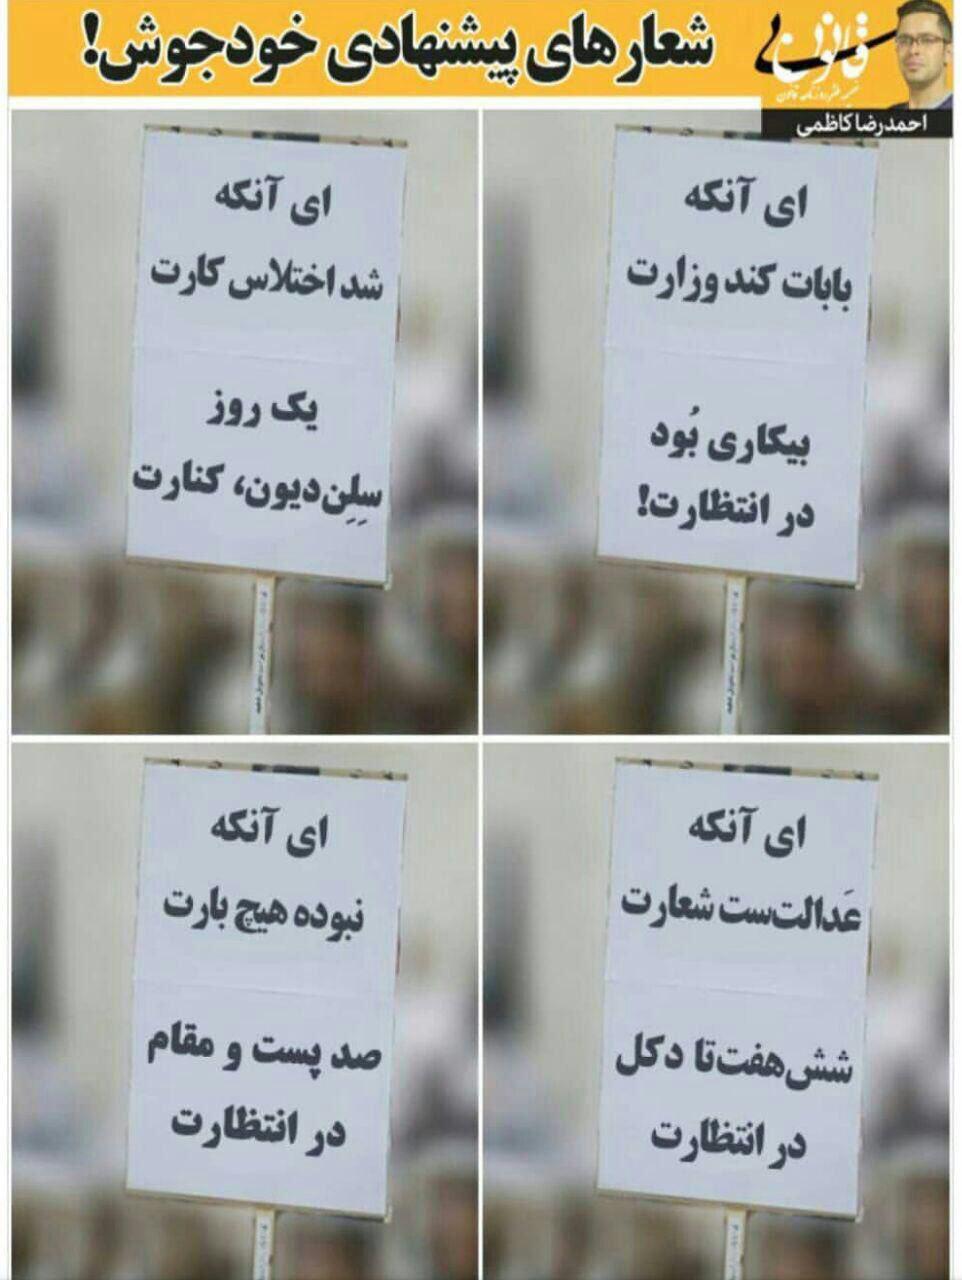 شعارهای پیشنهادی خودجوش!
بی‌قانون
احمدرضا کاظمی
ای آنکه
بابات کند وزارت
بیکاری بُود
در انتظارت!
ای آنکه
شد اختلاس کارت
یک روز
سِلِن‌دیون، کنارت
ای آنکه
عَدالت‌ست شعارت
شش‌هفت‌تا دکل
در انتظارت
ای آنکه
نبوده هیچ بارت
صد پست و مقام
در انتظارت